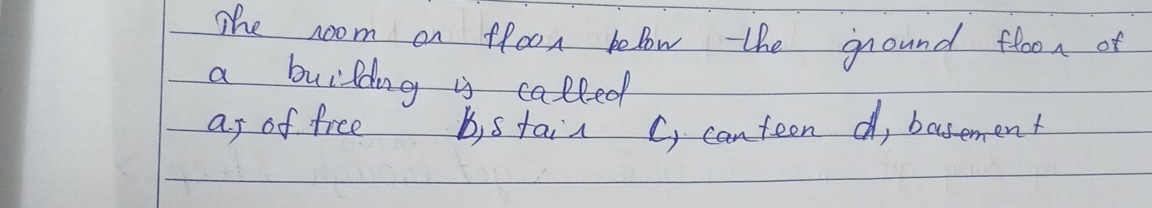 The room or floor below the ground floor of
a building is called
a, of free b, stair c, canteen d, basement